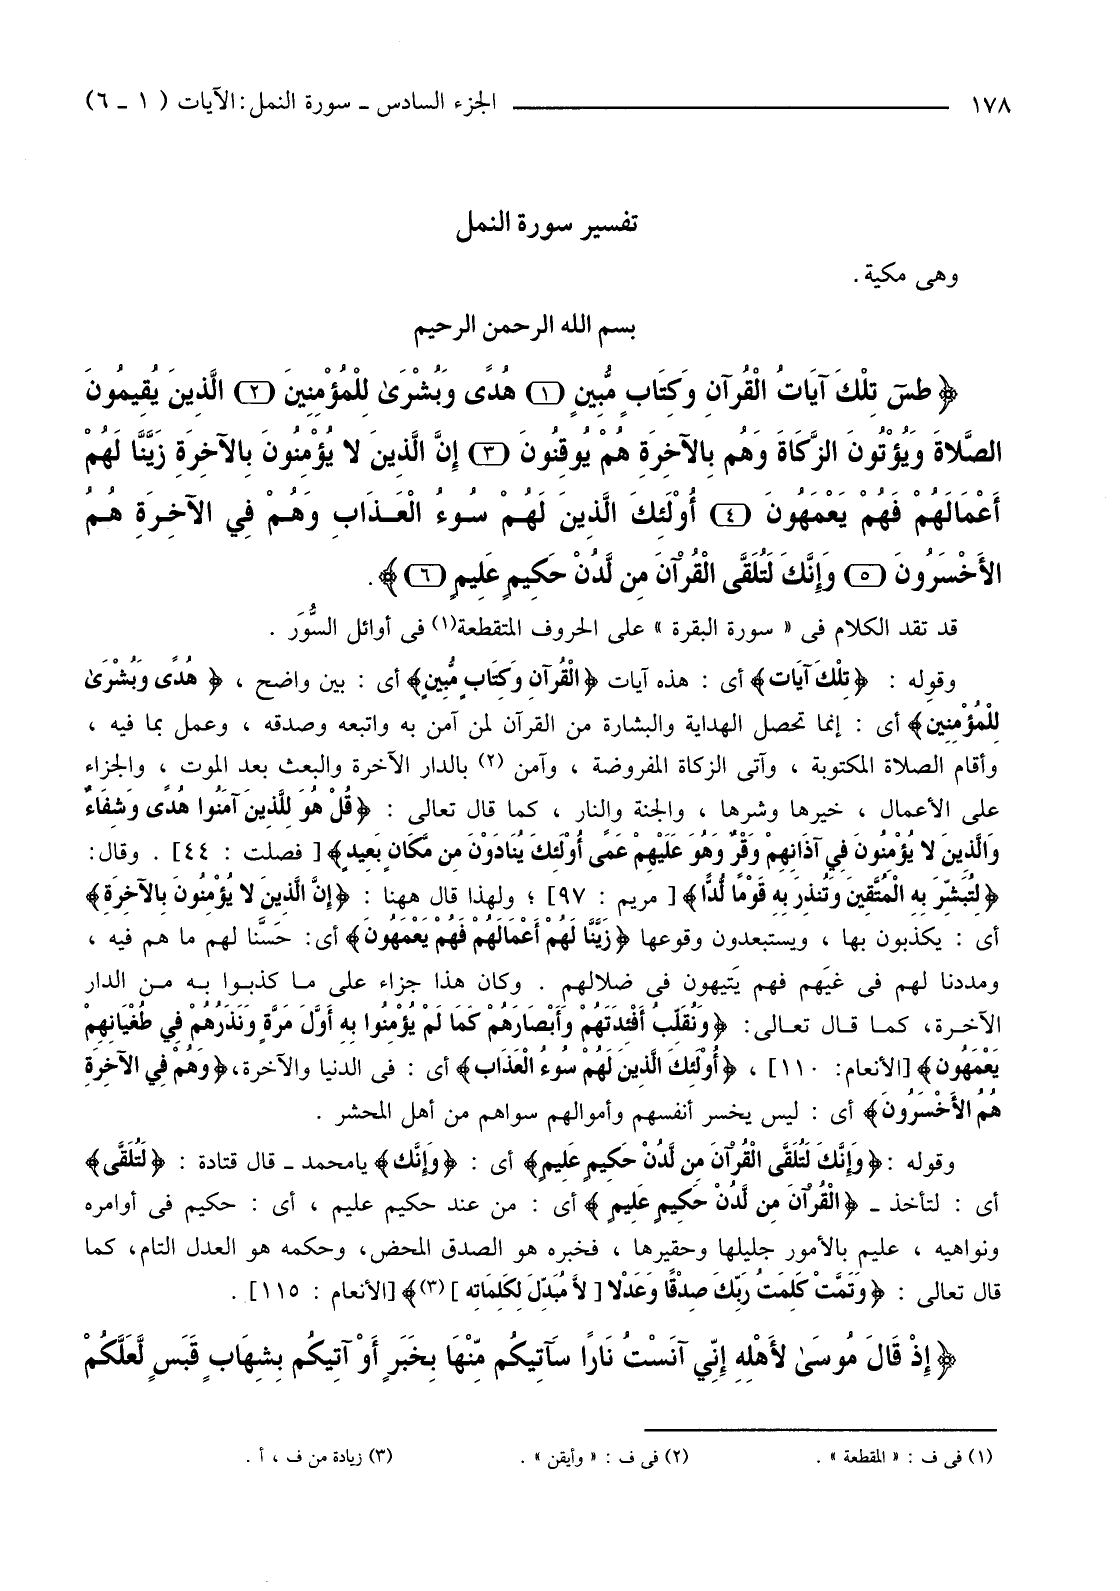 ١٧٨ الجزء السادس ـ سورة النمل: الآيات ( ١ ـ ٦)
تفسير سورة النمل
وهى مكية .
بسم الله الرحمن الرحيم
﴿ طسَ تِلْكَ آيَاتُ الْقُرْآنِ وَكِتَابٍ مُّبِينٍ (١) هُدًى وَبُشْرَىٰ لِلْمُؤْمِنِينَ (٢) الَّذِينَ يُقِيمُونَ
الصَّلاةَ وَيُؤْتُونَ الزَّكَاةَ وَهُم بِالآخِرَةِ هُمْ يُوقِنُونَ (٣) إِنَّ الَّذِينَ لا يُؤْمِنُونَ بِالآخِرَةِ زَيَّنَّا لَهُمْ
أَعْمَالَهُمْ فَهُمْ يَعْمَهُونَ (٤) أُوْلَئِكَ الَّذِينَ لَهُمْ سُوءُ الْعَذَابِ وَهُمْ فِي الآخِرَةِ هُمُ
الأَخْسَرُونَ (٥) وَإِنَّكَ لَتُلَقَّى الْقُرْآنَ مِن لَّدُنْ حَكِيمٍ عَلِيمٍ (٦)﴾ .
قد تقد الكلام فى « سورة البقرة » على الحروف المتقطعة(١) فى أوائل السُّوَر .
وقوله : ﴿تِلْكَ آيَات﴾ أى : هذه آيات ﴿الْقُرْآنِ وَكِتَابٍ مُّبِينٍ﴾ أى : بين واضح ، ﴿ هُدًى وَبُشْرَىٰ
لِلْمُؤْمِنِين﴾ أى : إنما تحصل الهداية والبشارة من القرآن لمن آمن به واتبعه وصدقه ، وعمل بما فيه ،
وأقام الصلاة المكتوبة ، وآتى الزكاة المفروضة ، وآمن (٢) بالدار الآخرة والبعث بعد الموت ، والجزاء
على الأعمال ، خيرها وشرها ، والجنة والنار ، كما قال تعالى : ﴿قُلْ هُوَ لِلَّذِينَ آمَنُوا هُدًى وَشِفَاءٌ
وَالَّذِينَ لا يُؤْمِنُونَ فِي آذَانِهِمْ وَقْرٌ وَهُوَ عَلَيْهِمْ عَمًى أُوْلَئِكَ يُنَادَوْنَ مِن مَّكَانٍ بَعِيدٍ﴾ [ فصلت : ٤٤] . وقال:
﴿لِتُبَشِّرَ بِهِ الْمُتَّقِينَ وَتُنذِرَ بِهِ قَوْمًا لُّدًّا﴾ [ مريم : ٩٧] ؛ ولهذا قال ههنا : ﴿إِنَّ الَّذِينَ لا يُؤْمِنُونَ بِالآخِرَةِ﴾
أى : يكذبون بها ، ويستبعدون وقوعها ﴿زَيَّنَّا لَهُمْ أَعْمَالَهُمْ فَهُمْ يَعْمَهُونَ﴾ أى: حَسنَّا لهم ما هم فيه ،
ومددنا لهم فى غيَهم فهم يَتيهون فى ضلالهم . وكان هذا جزاء على ما كذبوا به من الدار
الآخرة، كما قال تعالى: ﴿وَنُقَلِّبُ أَفْئِدَتَهُمْ وَأَبْصَارَهُمْ كَمَا لَمْ يُؤْمِنُوا بِهِ أَوَّلَ مَرَّةٍ وَنَذَرُهُمْ فِي طُغْيَانِهِمْ
يَعْمَهُون﴾ [الأنعام: ١١٠] ، ﴿أُوْلَئِكَ الَّذِينَ لَهُمْ سُوءُ الْعَذَاب﴾ أى : فى الدنيا والآخرة، ﴿وَهُمْ فِي الآخِرَةِ
هُمُ الأَخْسَرُونَ﴾ أى : ليس يخسر أنفسهم وأموالهم سواهم من أهل المحشر .
وقوله : ﴿وَإِنَّكَ لَتُلَقَّى الْقُرْآنَ مِن لَّدُنْ حَكِيمٍ عَلِيمٍ﴾ أى : ﴿وَإِنَّك﴾ يامحمد ـ قال قتادة : ﴿لَتُلَقَّى﴾
أى : لتأخذ ـ ﴿الْقُرْآنَ مِن لَّدُنْ حَكِيمٍ عَلِيمٍ ﴾ أى : من عند حكيم عليم ، أى : حكيم فى أوامره
ونواهيه ، عليم بالأمور جليلها وحقيرها ، فخبره هو الصدق المحض، وحكمه هو العدل التام، كما
قال تعالى : ﴿وَتَمَّتْ كَلِمَتُ رَبِّكَ صِدْقًا وَعَدْلا [ لاَّ مُبَدِّلَ لِكَلِمَاتِه ] (٣)﴾ [الأنعام : ١١٥] .
﴿إِذْ قَالَ مُوسَىٰ لأَهْلِهِ إِنِّي آنَسْتُ نَارًا سَآتِيكُم مِّنْهَا بِخَبَرٍ أَوْ آتِيكُم بِشِهَابٍ قَبَسٍ لَّعَلَّكُمْ
(١) فى ف : « المقطعة » . (٢) فى ف : « وأيقن » . (٣) زيادة من ف ، أ .